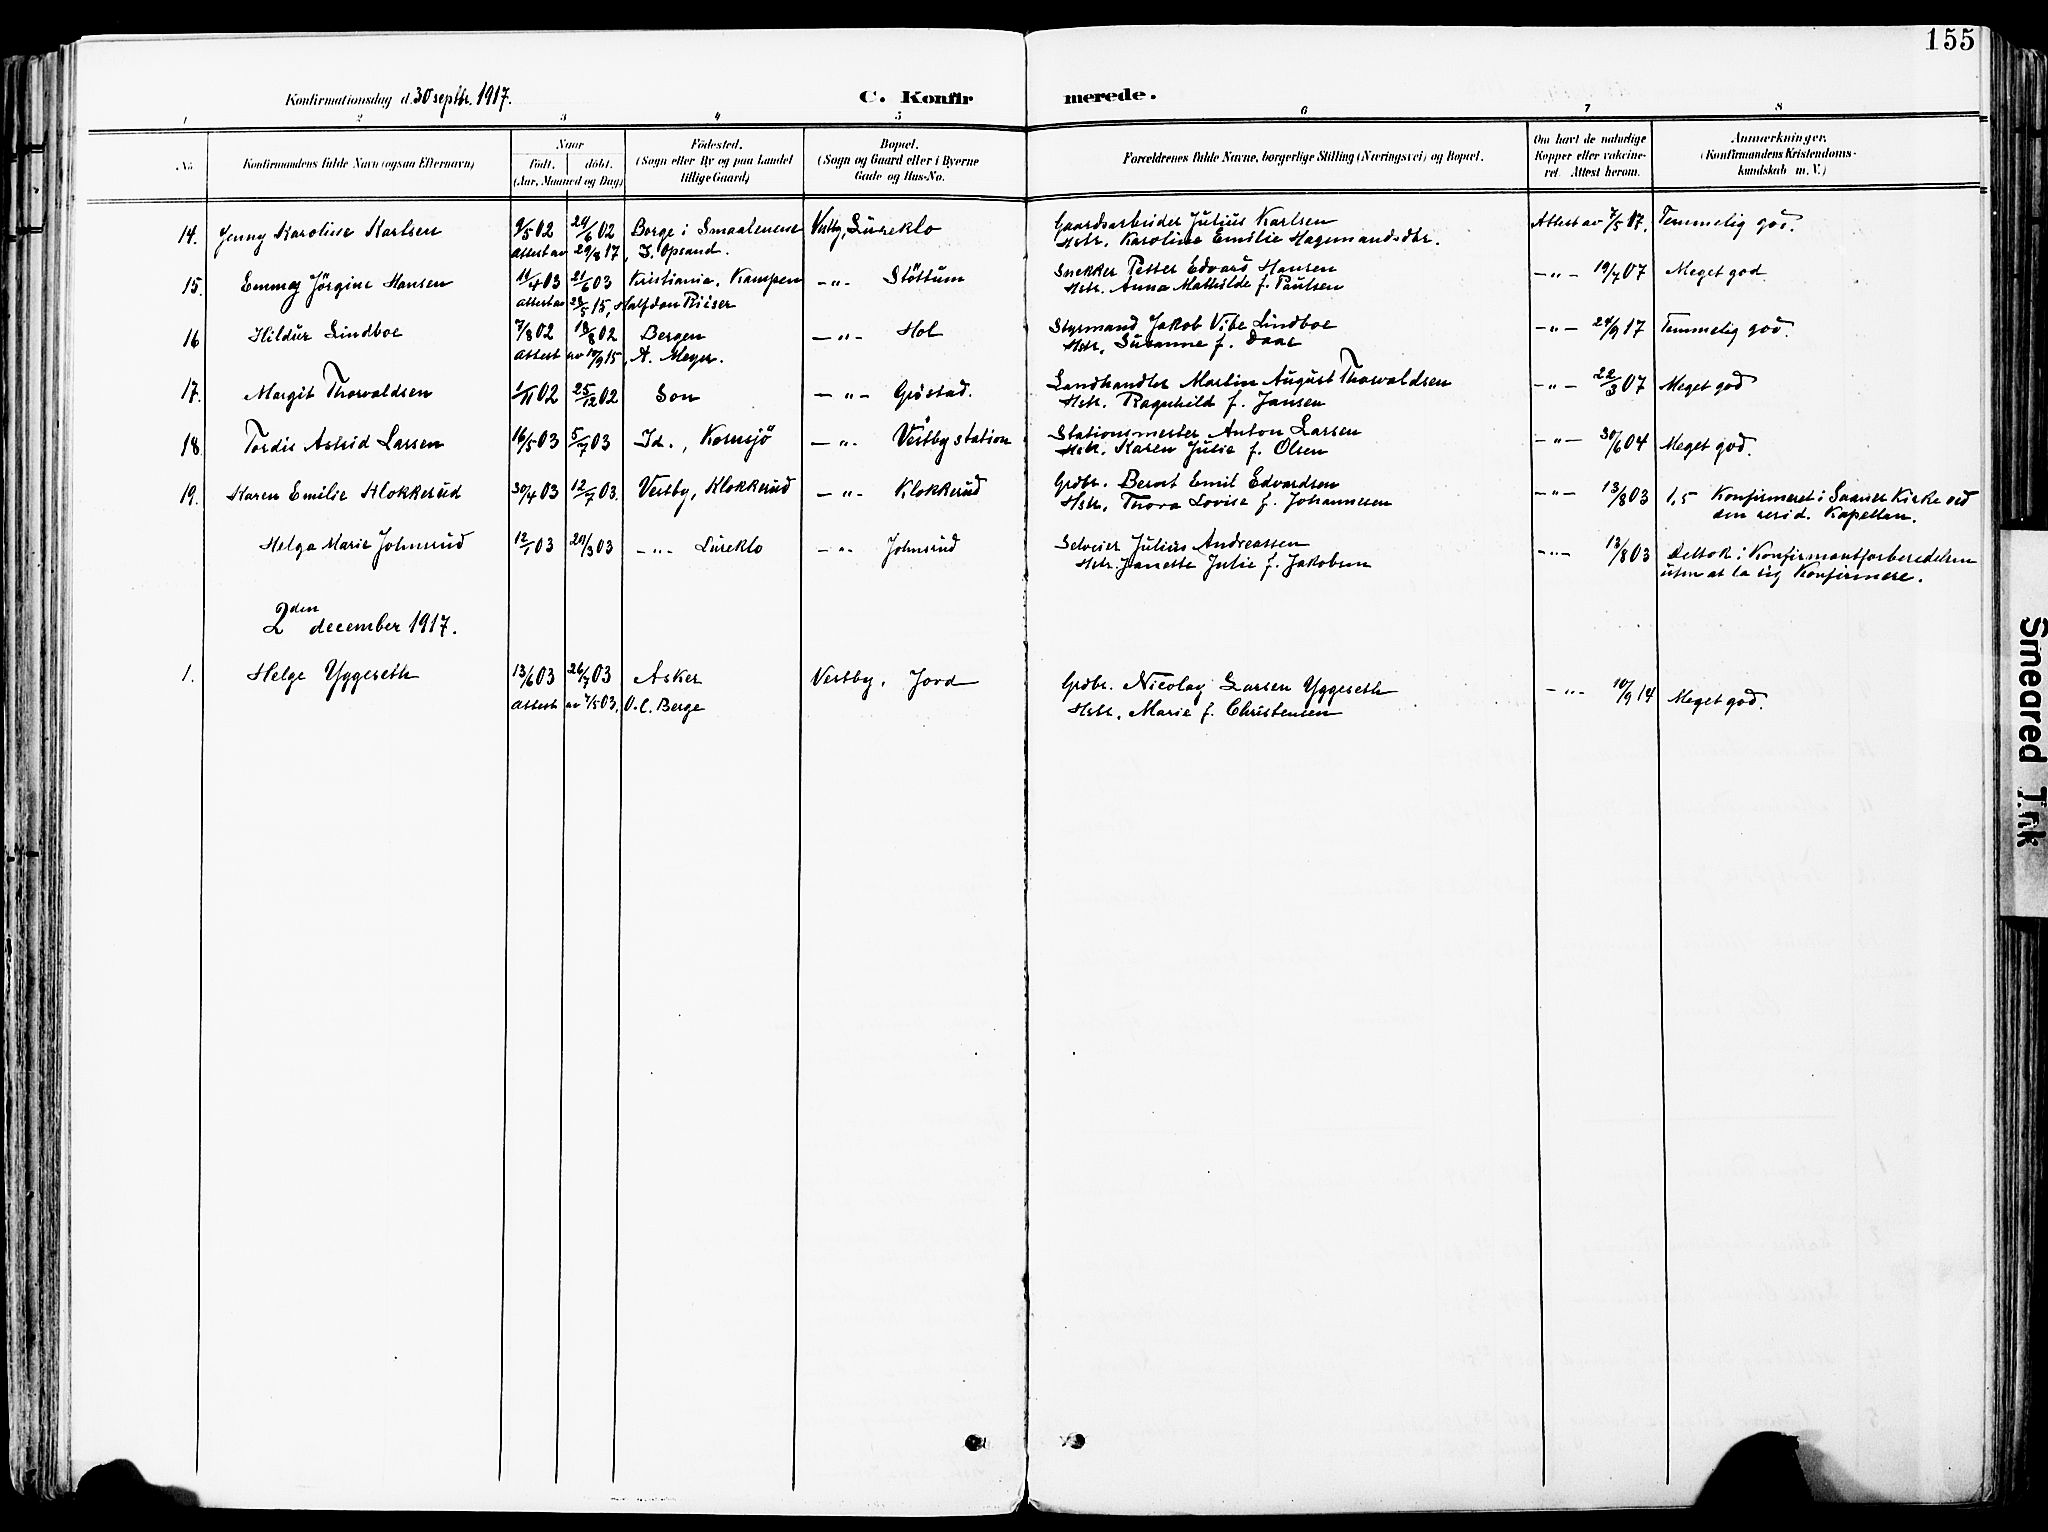 155
Konfirmationsdag d. 30 septbr. 1917.
C. Konfirmerede.
1 2 3 4 5 6 7 8
No. Konfirmandens fulde Navn (ogsaa Efternavn) Naar födt. döbt. (Aar, Maaned og Dag) Födested. (Sogn eller By og paa Landet tillige Gaard) Bopæl. (Sogn og Gaard eller i Byerne Gade og Hus-No. Forældrenes fulde Navne, borgerlige Stilling (Næringsvei) og Bopæl. Om havt de naturlige Kopper eller vakcineret. Attest herom. Anmærkninger. (Konfirmandens Kristendomskundskab m. V.)
14. Jenny Karoline Karlsen 9/5 02 24/6 02 Borge i Smaalenene Vestby, Lureklo Gaardsarbeider Julius Karlsen Attest av 7/5 07. Temmelig god.
attest av 29/8 17, I. Opsand. Hstr. Karoline Emilie Hagemandsdtr.
15. Emma Jörgine Hansen 11/4 03 21/6 03 Kristiania, Kampen —"— Stöttum Snekker Petter Edvard Hansen —"— 19/7 07 Meget god
attest av 28/5 15, Halfdan Riiser Hstr. Anna Mathilde f. Paulsen
16 Hildur Lindboe 7/8 02 18/8 02 Bergen —"— Hol Styrmand Jakob Vibe Lindboe —"— 24/9 17 Temmelig god.
attest av 17/9 15, A. Meyer. Hstr. Susanne f. Daae
17. Margit Thorvaldsen 1/11 02 25/12 02 Son —"— Grøstad. Landhandler Martin August Thorvaldsen —"— 22/3 07 Meget god
Hstr. Ragnhild f. Jansen
18. Tordis Astrid Larsen 16/5 03 5/7 03 Id., Kornsjö —"— Vestby station Stationsmester Anton Larsen —"— 30/6 04 Meget god.
Hstr. Karen Julie f. Olsen
19. Karen Emilie Klokkerud 30/4 03 12/7 03. Vestby, Klokkerud —"— Klokkerud Grdbr. Bernt Emil Edvardsen —"— 13/8 03 1,5 Konfirmeret i Saaner Kirke ved
Hstr. Thora Lovise f. Johannesen den resid. Kapellan.
Helga Marie Johnsrud 12/1 03 29/3 03 —"— Lureklo —"— Johnsrud Selveier Julius Andreassen —"— 13/8 03 Deltok i Konfirmantforberedelsen
Hstr. Janette Julie f. Jakobsen uten at la sig Konfirmere.
2den december 1917.
1. Helge Yggeseth 13/6 03 26/7 03 Asker Vestby, Jord Grdbr. Nicolay Larsen Yggeseth —"— 10/9 14 Meget god.
attest av 7/5 03, O. C. Berge Hstr. Marie f. Christensen
Smeared Ink